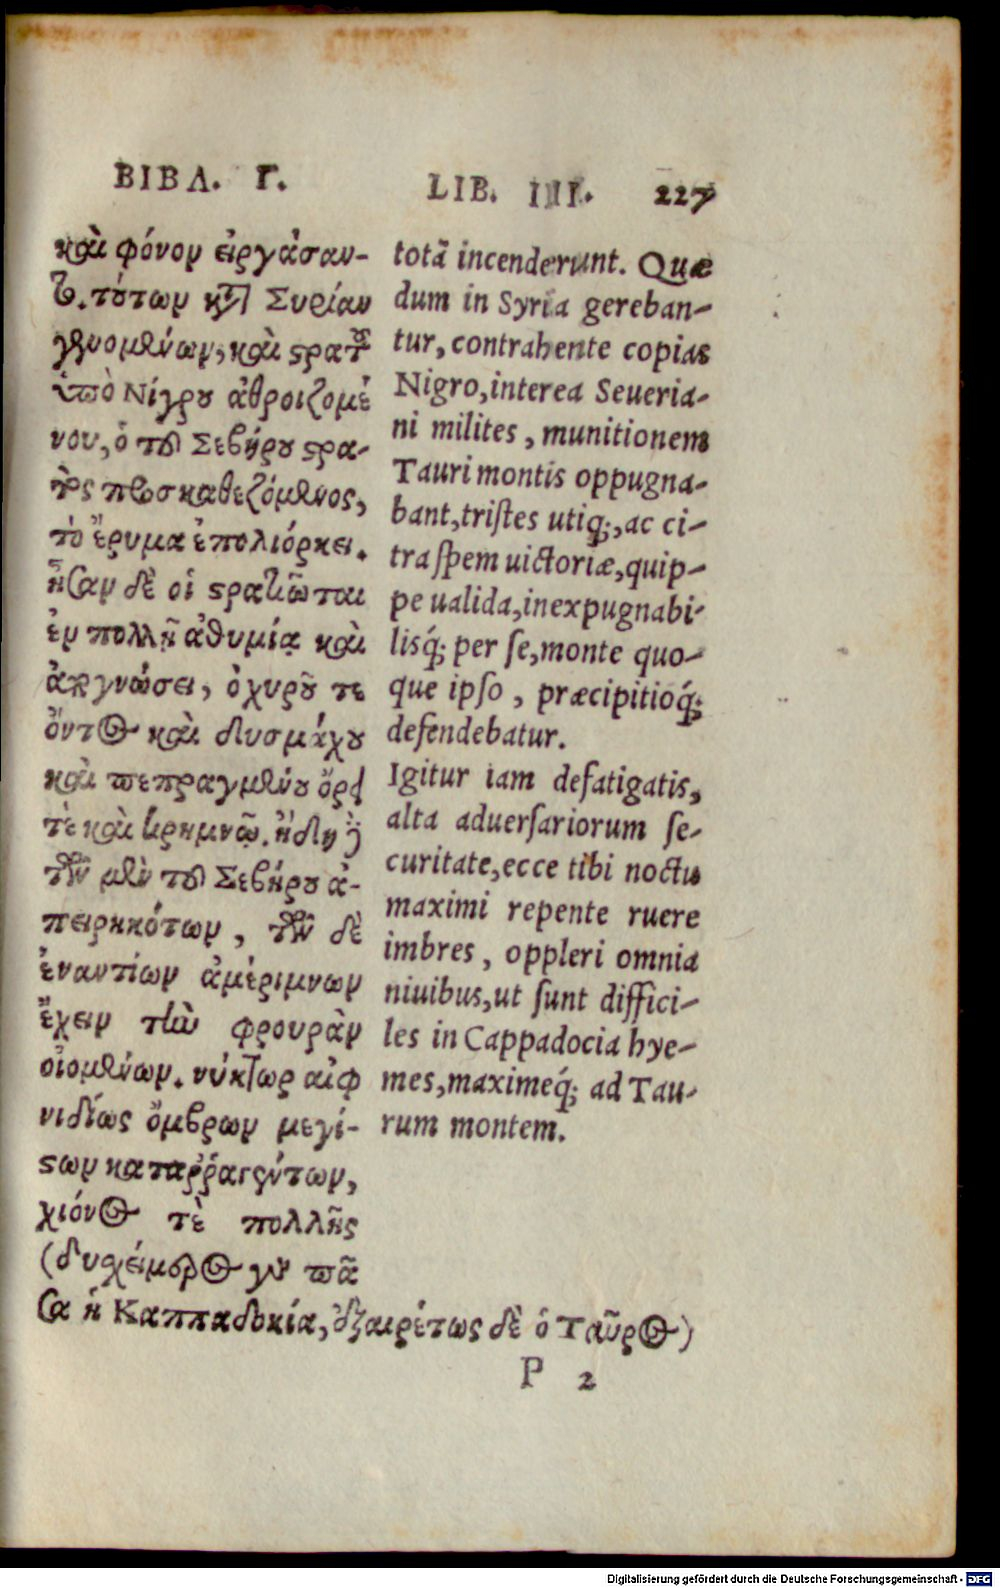 ΒΙΒΛ. Γ.
καὶ φόνον εἰργάσαν-
το. τούτων κατὰ Συρίαν
γινομένων, καὶ στρατοῦ
ὑπὸ Νίγρου ἀθροιζομέ
νου, ὁ τοῦ Σεβήρου στρα-
τὸς προσκαθεζόμενος,
τὸ ἔρυμα ἐπολιόρκει.
ἦσαν δὲ οἱ στρατιῶται
ἐν πολλῇ ἀθυμίᾳ καὶ
ἀπογνώσει, ὀχυροῦ τε
ὄντος καὶ δυσμάχου
καὶ πεπραγμένου ὄρει
τὲ καὶ κρημνῷ. ἤδη δὲ
τῶν μὲν τοῦ Σεβήρου ἀ-
πειρηκότων, τῶν δὲ
ἐναντίων ἀμέριμνων
ἔχειν τὴν φρουρὰν
οἰομένων. νύκτωρ αἰφ
νιδίως ὄμβρων μεγί-
στων καταῤῥαγέντων,
χιόνος τὲ πολλῆς
(δυσχείμερος γὰρ πᾶ
σα ἡ Καππαδοκία, ἐξαιρέτως δὲ ὁ Ταῦρος)
LIB. III. 227
totã incenderunt. Quæ
dum in Syria gereban-
tur, contrahente copias
Nigro, interea Seueria-
ni milites, munitionem
Tauri montis oppugna-
bant, triſtes utiq;, ac ci-
tra ſpem uictoriæ, quip-
pe ualida, inexpugnabi-
lisq́; per ſe, monte quo-
que ipſo, præcipitioq́;
defendebatur.
Igitur iam defatigatis,
alta aduerſariorum ſe-
curitate, ecce tibi noctu
maximi repente ruere
imbres, oppleri omnia
niuibus, ut ſunt diffici-
les in Cappadocia hye-
mes, maximeq́; ad Tau-
rum montem.
P 2
Digitalisierung gefördert durch die Deutsche Forschungsgemeinschaft - DFG